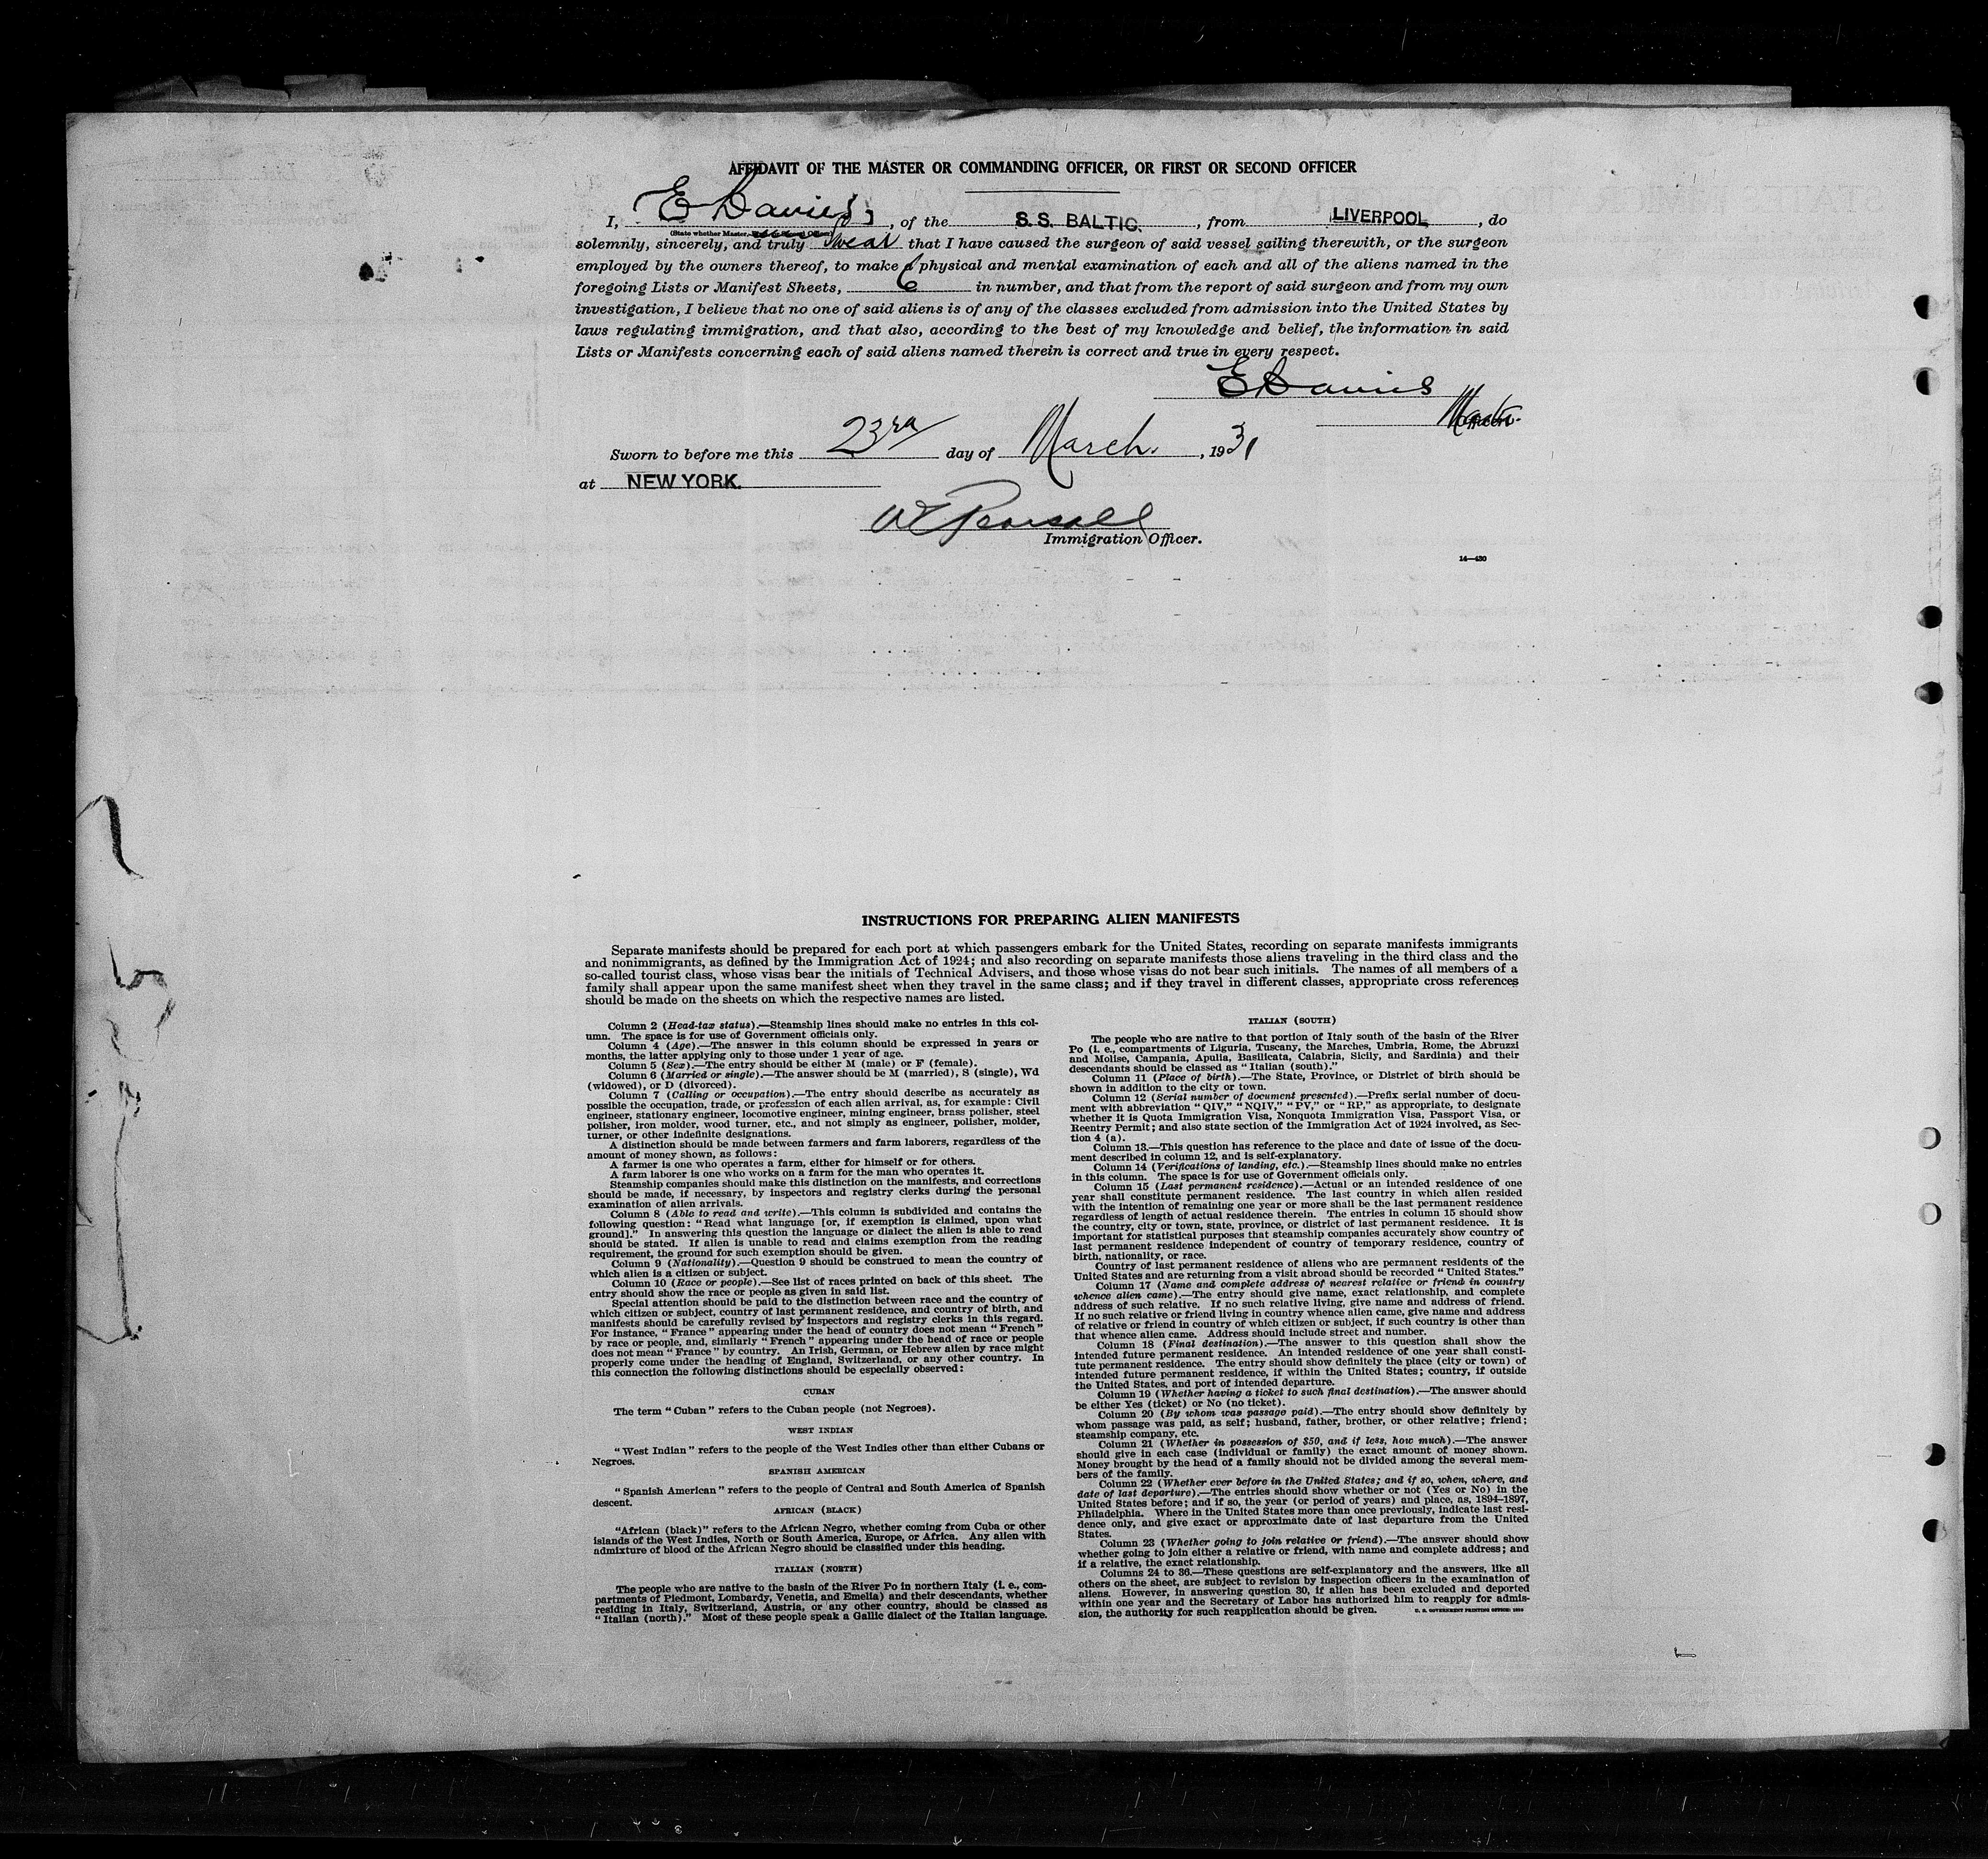 AFFIDAVIT OF THE MASTER OR COMMANDING OFFICER, OR FIRST OR SECOND OFFICER
I, E Davies, of the S.S. BALTIC. , from LIVERPOOL , do
(State whether Master,
solemnly, sincerely, and truly swear that I have caused the surgeon of said vessel sailing therewith, or the surgeon
employed by the owners thereof, to make a physical and mental examination of each and all of the aliens named in the
foregoing Lists or Manifest Sheets, 6 in number, and that from the report of said surgeon and from my own
investigation, I believe that no one of said aliens is of any of the classes excluded from admission into the United States by
laws regulating immigration, and that also, according to the best of my knowledge and belief, the information in said
Lists or Manifests concerning each of said aliens named therein is correct and true in every respect.
E Davies
Master
Sworn to before me this 23rd day of March. , 1931
at NEW YORK.
Immigration Officer.
14—430
INSTRUCTIONS FOR PREPARING ALIEN MANIFESTS
Separate manifests should be prepared for each port at which passengers embark for the United States, recording on separate manifests immigrants
and nonimmigrants, as defined by the Immigration Act of 1924; and also recording on separate manifests those aliens traveling in the third class and the
so-called tourist class, whose visas bear the initials of Technical Advisers, and those whose visas do not bear such initials. The names of all members of a
family shall appear upon the same manifest sheet when they travel in the same class; and if they travel in different classes, appropriate cross references
should be made on the sheets on which the respective names are listed.
Column 2 (Head-tax status).—Steamship lines should make no entries in this col-
umn. The space is for use of Government officials only.
Column 4 (Age).—The answer in this column should be expressed in years or
months, the latter applying only to those under 1 year of age.
Column 5 (Sex).—The entry should be either M (male) or F (female).
Column 6 (Married or single).—The answer should be M (married), S (single), Wd
(widowed), or D (divorced).
Column 7 (Calling or occupation).—The entry should describe as accurately as
possible the occupation, trade, or profession of each alien arrival, as, for example: Civil
engineer, stationary engineer, locomotive engineer, mining engineer, brass polisher, steel
polisher, iron molder, wood turner, etc., and not simply as engineer, polisher, molder,
turner, or other indefinite designations.
A distinction should be made between farmers and farm laborers, regardless of the
amount of money shown, as follows:
A farmer is one who operates a farm, either for himself or for others.
A farm laborer is one who works on a farm for the man who operates it.
Steamship companies should make this distinction on the manifests, and corrections
should be made, if necessary, by inspectors and registry clerks during the personal
examination of alien arrivals.
Column 8 (Able to read and write).—This column is subdivided and contains the
following question: "Read what language [or, if exemption is claimed, upon what
ground]." In answering this question the language or dialect the alien is able to read
should be stated. If alien is unable to read and claims exemption from the reading
requirement, the ground for such exemption should be given.
Column 9 (Nationality).—Question 9 should be construed to mean the country of
which alien is a citizen or subject.
Column 10 (Race or people).—See list of races printed on back of this sheet. The
entry should show the race or people as given in said list.
Special attention should be paid to the distinction between race and the country of
which citizen or subject, country of last permanent residence, and country of birth, and
manifests should be carefully revised by inspectors and registry clerks in this regard.
For instance, "France" appearing under the head of country does not mean "French"
by race or people, and, similarly "French" appearing under the head of race or people
does not mean "France" by country. An Irish, German, or Hebrew alien by race might
properly come under the heading of England, Switzerland, or any other country. In
this connection the following distinctions should be especially observed:
CUBAN
The term "Cuban" refers to the Cuban people (not Negroes).
WEST INDIAN
"West Indian" refers to the people of the West Indies other than either Cubans or
Negroes.
SPANISH AMERICAN
"Spanish American" refers to the people of Central and South America of Spanish
descent.
AFRICAN (BLACK)
"African (black)" refers to the African Negro, whether coming from Cuba or other
islands of the West Indies, North or South America, Europe, or Africa. Any alien with
admixture of blood of the African Negro should be classified under this heading.
ITALIAN (NORTH)
The people who are native to the basin of the River Po in northern Italy (i. e., com-
partments of Piedmont, Lombardy, Venetia, and Emelia) and their descendants, whether
residing in Italy, Switzerland, Austria, or any other country, should be classed as
"Italian (north)." Most of these people speak a Gallic dialect of the Italian language.
ITALIAN (SOUTH)
The people who are native to that portion of Italy south of the basin of the River
Po (i. e., compartments of Liguria, Tuscany, the Marches, Umbria, Rome, the Abruzzi
and Molise, Campania, Apulia, Basilicata, Calabria, Sicily, and Sardinia) and their
descendants should be classed as "Italian (south)."
Column 11 (Place of birth).—The State, Province, or District of birth should be
shown in addition to the city or town.
Column 12 (Serial number of document presented).—Prefix serial number of docu-
ment with abbreviation "QIV," "NQIV," "PV," or "RP," as appropriate, to designate
whether it is Quota Immigration Visa, Nonquota Immigration Visa, Passport Visa, or
Reentry Permit; and also state section of the Immigration Act of 1924 involved, as Sec-
tion 4 (a).
Column 13.—This question has reference to the place and date of issue of the docu-
ment described in column 12, and is self-explanatory.
Column 14 (Verifications of landing, etc.).—Steamship lines should make no entries
in this column. The space is for use of Government officials only.
Column 15 (Last permanent residence).—Actual or an intended residence of one
year shall constitute permanent residence. The last country in which alien resided
with the intention of remaining one year or more shall be the last permanent residence
regardless of length of actual residence therein. The entries in column 15 should show
the country, city or town, state, province, or district of last permanent residence. It is
important for statistical purposes that steamship companies accurately show country of
last permanent residence independent of country of temporary residence, country of
birth, nationality, or race.
Country of last permanent residence of aliens who are permanent residents of the
United States and are returning from a visit abroad should be recorded "United States."
Column 17 (Name and complete address of nearest relative or friend in country
whence alien came).—The entry should give name, exact relationship, and complete
address of such relative. If no such relative living, give name and address of friend.
If no such relative or friend living in country whence alien came, give name and address
of relative or friend in country of which citizen or subject, if such country is other than
that whence alien came. Address should include street and number.
Column 18 (Final destination).—The answer to this question shall show the
intended future permanent residence. An intended residence of one year shall consti-
tute permanent residence. The entry should show definitely the place (city or town) of
intended future permanent residence, if within the United States; country, if outside
the United States, and port of intended departure.
Column 19 (Whether having a ticket to such final destination).—The answer should
be either Yes (ticket) or No (no ticket).
Column 20 (By whom was passage paid).—The entry should show definitely by
whom passage was paid, as self; husband, father, brother, or other relative; friend;
steamship company, etc.
Column 21 (Whether in possession of $50, and if less, how much).—The answer
should give in each case (individual or family) the exact amount of money shown.
Money brought by the head of a family should not be divided among the several mem-
bers of the family.
Column 22 (Whether ever before in the United States; and if so, when, where, and
date of last departure).—The entries should show whether or not (Yes or No) in the
United States before; and if so, the year (or period of years) and place, as, 1894–1897,
Philadelphia. Where in the United States more than once previously, indicate last resi-
dence only, and give exact or approximate date of last departure from the United
States.
Column 23 (Whether going to join relative or friend).—The answer should show
whether going to join either a relative or friend, with name and complete address; and
if a relative, the exact relationship.
Columns 24 to 36.—These questions are self-explanatory and the answers, like all
others on the sheet, are subject to revision by inspection officers in the examination of
aliens. However, in answering question 30, if alien has been excluded and deported
within one year and the Secretary of Labor has authorized him to reapply for admis-
sion, the authority for such reapplication should be given.